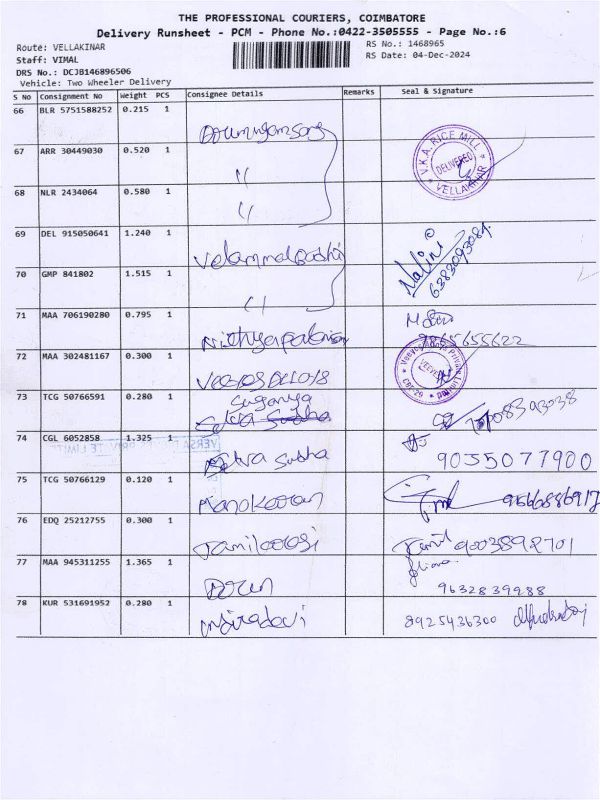 THE PROFESSIONAL COURIERS, COIMBATORE
Delivery Runsheet - PCM - Phone No.:0422-3505555 - Page No.:6
Route: VELLAKINAR
RS No.: 1468965
Staff: VIMAL
RS Date: 04-Dec-2024
DRS No.: DCJB146896506
Vehicle: Two Wheeler Delivery
S No Consignment No Weight PCS Consignee Details Remarks Seal & Signature
66 BLR 5751588252 0.215 1
67 ARR 30449030 0.520 1 " V.K.A. RICE MILL DELIVERED VELLAKINAR
68 NLR 2434064 0.580 1 "
69 DEL 915050641 1.240 1 Nalini 6383093089
70 GMP 841802 1.515 1 "
71 MAA 706190280 0.795 1 9865655622
72 MAA 302481167 0.300 1
73 TCG 50766591 0.280 1 Suganya
74 CGL 6052858 1.325 1 Selva Subha 9055077900
75 TCG 50766129 0.120 1 Manokaran 9566886917
76 EDQ 25212755 0.300 1 Tamilarasi Tamil 9003892701
77 MAA 945311255 1.365 1 9632839288
78 KUR 531691952 0.280 1 Indiradevi 8925436300